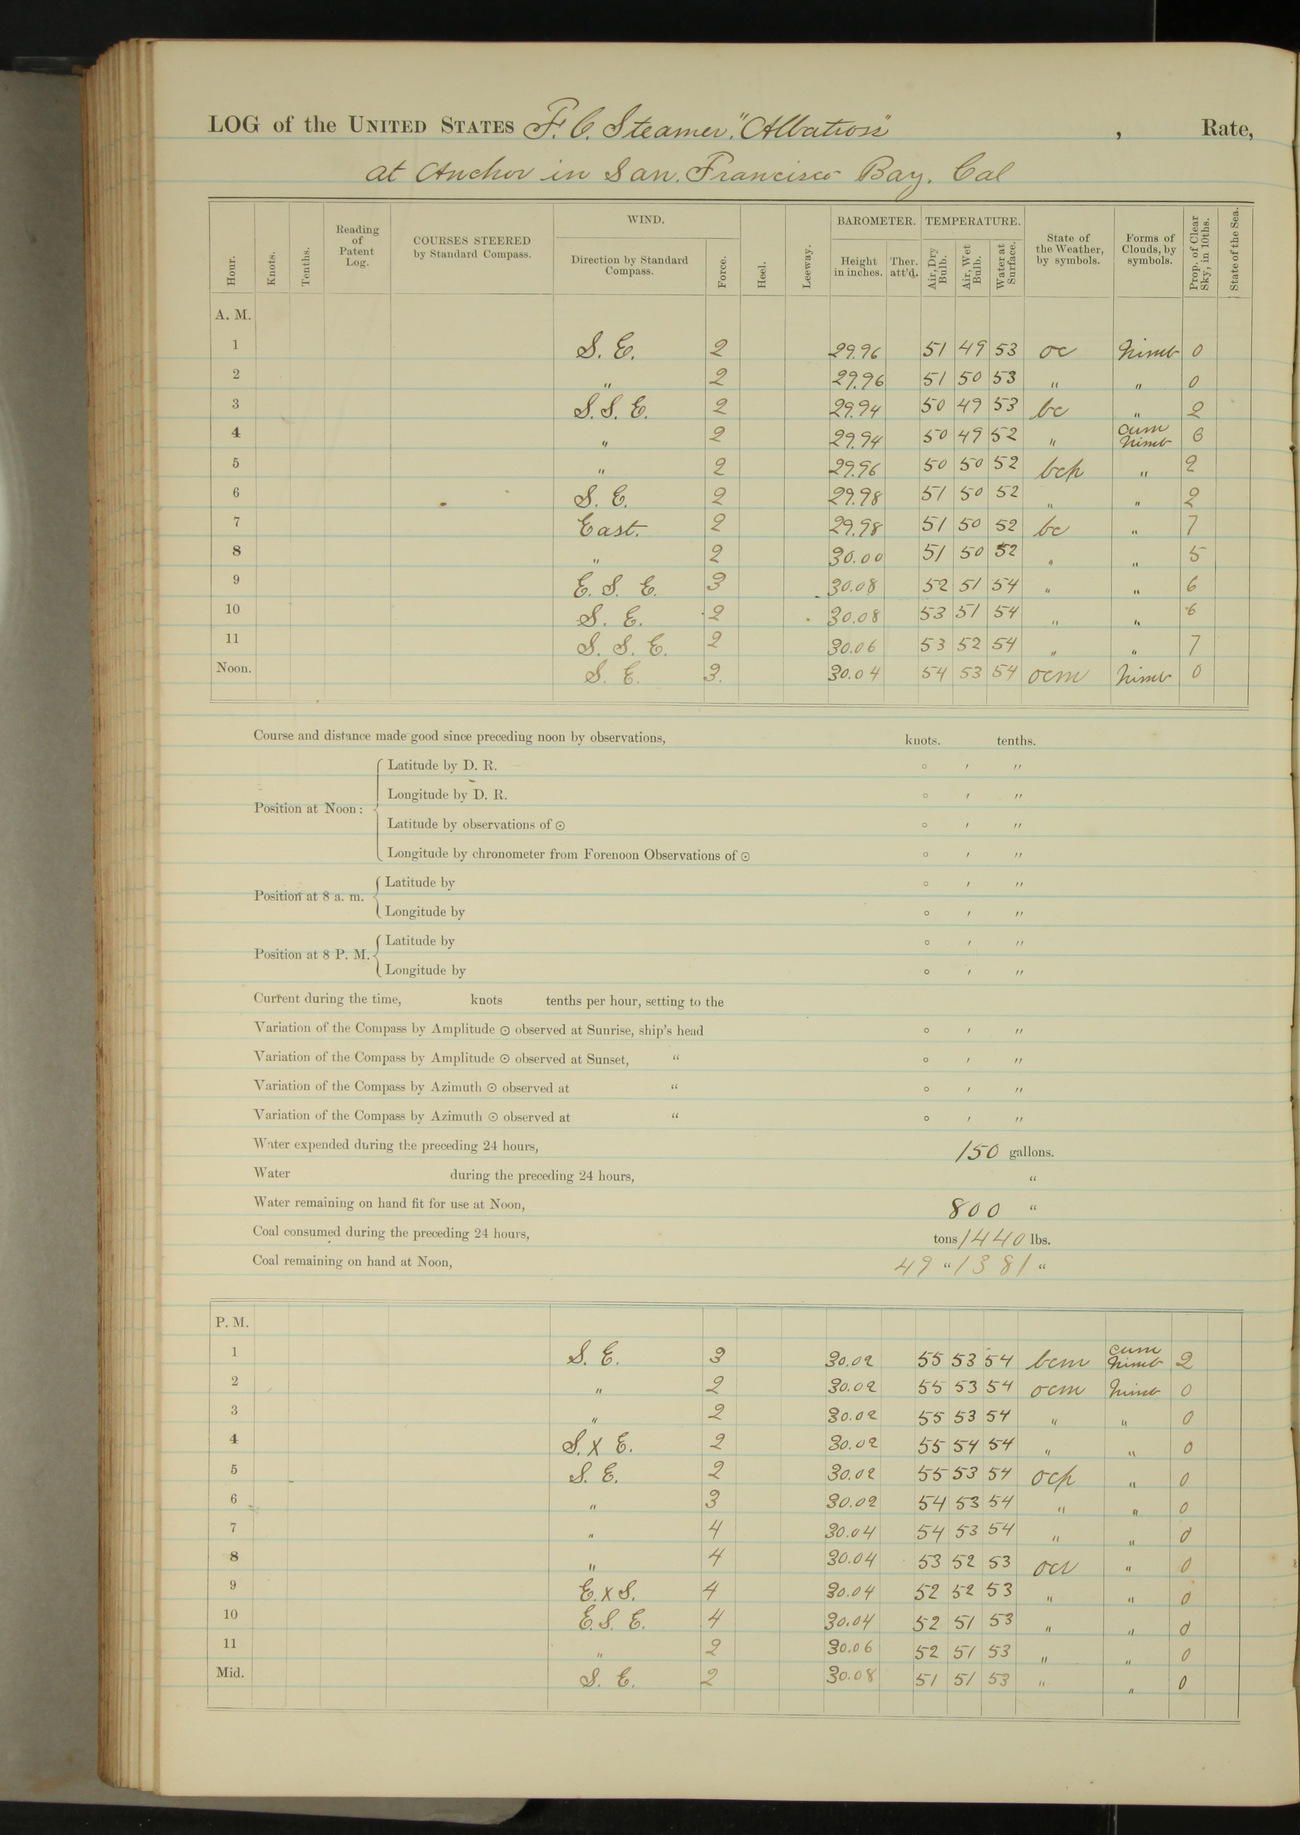 LOG of the UNITED STATES F. C. Steamer "Albatross", Rate,
at Anchor in San Francisco Bay, Cal
Hour. Knots. Tenths. Reading of Patent Log. COURSES STEERED by Standard Compass. WIND. Direction by Standard Compass. Force. Heel. Leeway. BAROMETER. Height in inches. Ther. att'd. TEMPERATURE. Air, Dry Bulb. Air, Wet Bulb. Water at Surface. State of the Weather, by symbols. Forms of Clouds, by symbols. Prop. of Clear Sky, in 10ths. State of the Sea.
A. M.
1 S. E. 2 29.96 51 49 53 oc Nimb 0
2 " 2 29.96 51 50 53 " " 0
3 S. S. E. 2 29.94 50 49 53 bc " 2
4 " 2 29.94 50 49 52 " Cum Nimb 6
5 " 2 29.96 50 50 52 bcp " 2
6 S. E. 2 29.98 51 50 52 " " 2
7 East. 2 29.98 51 50 52 bc " 7
8 " 2 30.00 51 50 52 " " 5
9 E. S. E. 3 30.08 52 51 54 " " 6
10 S. E. 2 30.08 53 51 54 " " 6
11 S. S. E. 2 30.06 53 52 54 " " 7
Noon. S. E. 3. 30.04 54 53 54 ocm Nimb 0
Course and distance made good since preceding noon by observations, knots. tenths.
Position at Noon:
Latitude by D. R. ° ′ ″
Longitude by D. R. ° ′ ″
Latitude by observations of ⊙ ° ′ ″
Longitude by chronometer from Forenoon Observations of ⊙ ° ′ ″
Position at 8 a. m.
Latitude by ° ′ ″
Longitude by ° ′ ″
Position at 8 P. M.
Latitude by ° ′ ″
Longitude by ° ′ ″
Current during the time, knots tenths per hour, setting to the
Variation of the Compass by Amplitude ⊙ observed at Sunrise, ship's head ° ′ ″
Variation of the Compass by Amplitude ⊙ observed at Sunset, " ° ′ ″
Variation of the Compass by Azimuth ⊙ observed at " ° ′ ″
Variation of the Compass by Azimuth ⊙ observed at " ° ′ ″
Water expended during the preceding 24 hours, 150 gallons.
Water during the preceding 24 hours, "
Water remaining on hand fit for use at Noon, 800 "
Coal consumed during the preceding 24 hours, tons 1440 lbs.
Coal remaining on hand at Noon, 49 " 1381 "
P. M.
1 S. E. 3 30.02 55 53 54 bcm Cum Nimb 2
2 " 2 30.02 55 53 54 ocm Nimb 0
3 " 2 30.02 55 53 54 " " 0
4 S. X E. 2 30.02 55 54 54 " " 0
5 S. E. 2 30.02 55 53 54 ocp " 0
6 " 3 30.02 54 53 54 " " 0
7 " 4 30.04 54 53 54 " " 0
8 " 4 30.04 53 52 53 ocr " 0
9 E. X S. 4 30.04 52 52 53 " " 0
10 E. S. E. 4 30.04 52 51 53 " " 0
11 " 2 30.06 52 51 53 " " 0
Mid. S. E. 2 30.08 51 51 53 " " 0